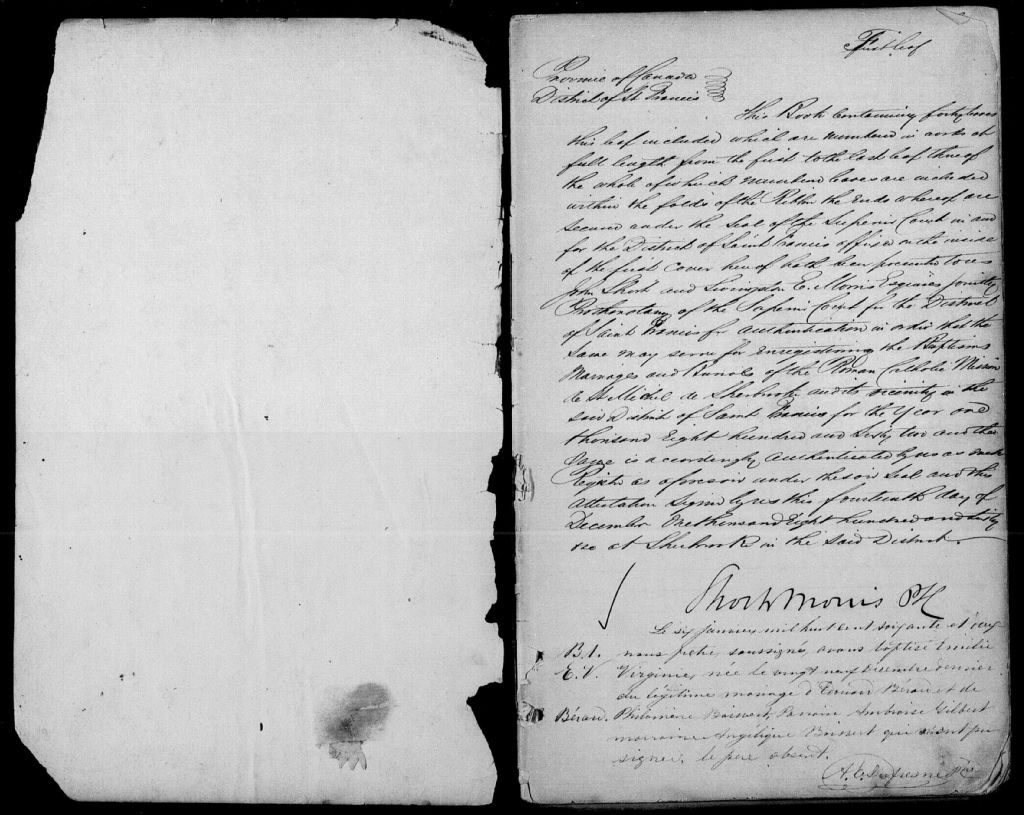 First leaf
Province of Canada
District of St Francis
This Book containing forty leaves
this leaf included which are numbered in words at
full length from the first to the last leaf thereof
the whole of which numbered leaves are included
within the folds of the Ribbon the Ends whereof are
secured under the Seal of the Superior Court in and
for the District of Saint Francis affixed on the inside
of the first cover hereof hath been presented to us
John Short and E. Morris Esquires jointly
Prothonotary of the Superior Court for the District
of Saint Francis for authentication in order that the
same may serve for enregistering the Baptisms
Marriages and Burials of the Roman Catholic Mission
de St Michel de Sherbrooke and its vicinity in the
said District of Saint Francis for the Year one
thousand Eight hundred and Sixty two and the
same is accordingly authenticated by us as such
Register as aforesaid under the said Seal and this
Attestation Signed by us this fourteenth day of
December One thousand Eight hundred and sixty
at Sherbrooke in the said District.
Short & Morris PSC
Le six janvier mil huit cent soixante et deux
B.1. nous prêtre soussigné, avons baptisé Emélie
E.V. Virginie, née le vingt neuf décembre dernier
du légitime mariage d'Edouard Bérard et de
Bérard. Philomène Boisvert, Parrain Ambroise Gilbert
marraine Angélique Boisvert qui n'ont pu
signer. le père absent.
A. E. Dufresne Ptre